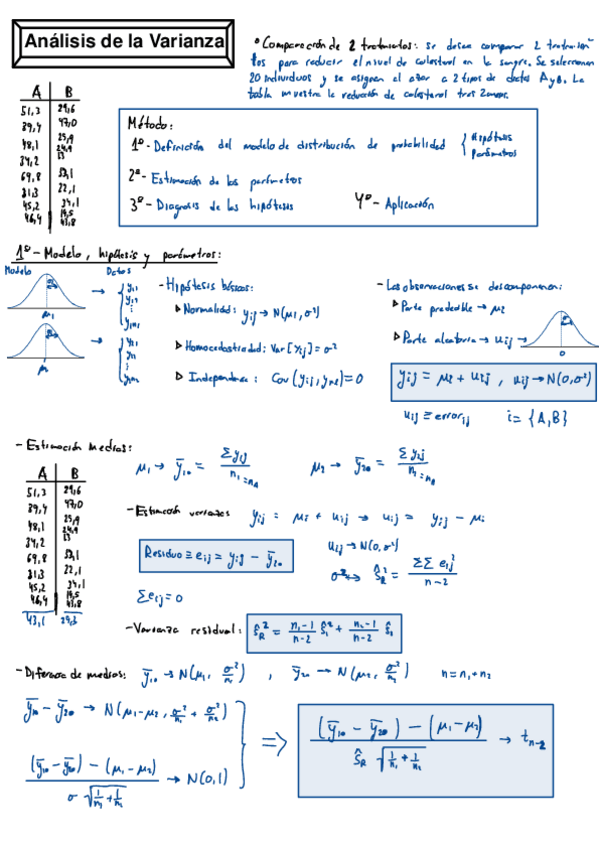 Análisis de la Varianza
* Comparación de 2 tratamientos: se desea comparar 2 tratamien
tos para reducir el nivel de colesterol en la sangre. Se seleccionan
20 individuos y se asignan al azar a 2 tipos de dietas A y B. La
tabla muestra la reducción de colesterol tras 2 meses.
A B
51,3 29,6
39,4 47,0
48,1 25,9
34,2
69,8
31,3 22,1
45,2 34,1
46,4 43,8
Método:
1º - Definición del modelo de distribución de probabilidad { Hipótesis
Parámetros
2º - Estimación de los parámetros
3º - Diagnosis de las hipótesis 4º - Aplicación
1º - Modelo, hipótesis y parámetros:
Modelo Datos
- Hipótesis básicas:
▷ Normalidad: yij → N(μi, σ²)
▷ Homocedasticidad: Var[yij] = σ²
▷ Independencia: Cov(yij, ykl) = 0
- Las observaciones se descomponen:
▷ Parte predecible → μi
▷ Parte aleatoria → uij →
yij = μi + uij , uij → N(0,σ²)
uij ≡ errorij i = {A,B}
- Estimación Medias:
μ1 → ȳ1• = Σyij / n1 = nA
μ2 → ȳ2• = Σyij / n1 = nB
A B
51,3 29,6
39,4 47,0
48,1 25,9
34,2
69,8
31,3 22,1
45,2 34,1
46,4 43,8
43,1 29,3
- Estimación varianzas yij = μi + uij → uij = yij - μi
Residuo ≡ eij = yij - ȳi•
uij → N(0,σ²)
σ² ↔ ŝR² = ΣΣ eij² / n-2
Σeij = 0
- Varianza residual: ŝR² = n1-1 / n-2 ŝ1² + n2-1 / n-2 ŝ2
- Diferencia de medias: ȳ1• → N(μ1, σ²/n1) , ȳ2• → N(μ2, σ²/n2) n = n1 + n2
ȳ1• - ȳ2• → N(μ1 - μ2, σ²/n1 + σ²/n2)
(ȳ1• - ȳ2•) - (μ1 - μ2) / σ √(1/n1 + 1/n2) → N(0,1)
⇒ (ȳ1• - ȳ2•) - (μ1 - μ2) / ŝR √(1/n1 + 1/n2) → tn-2